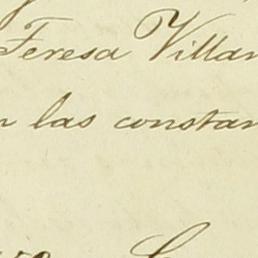 Teresa Villar
n las constan